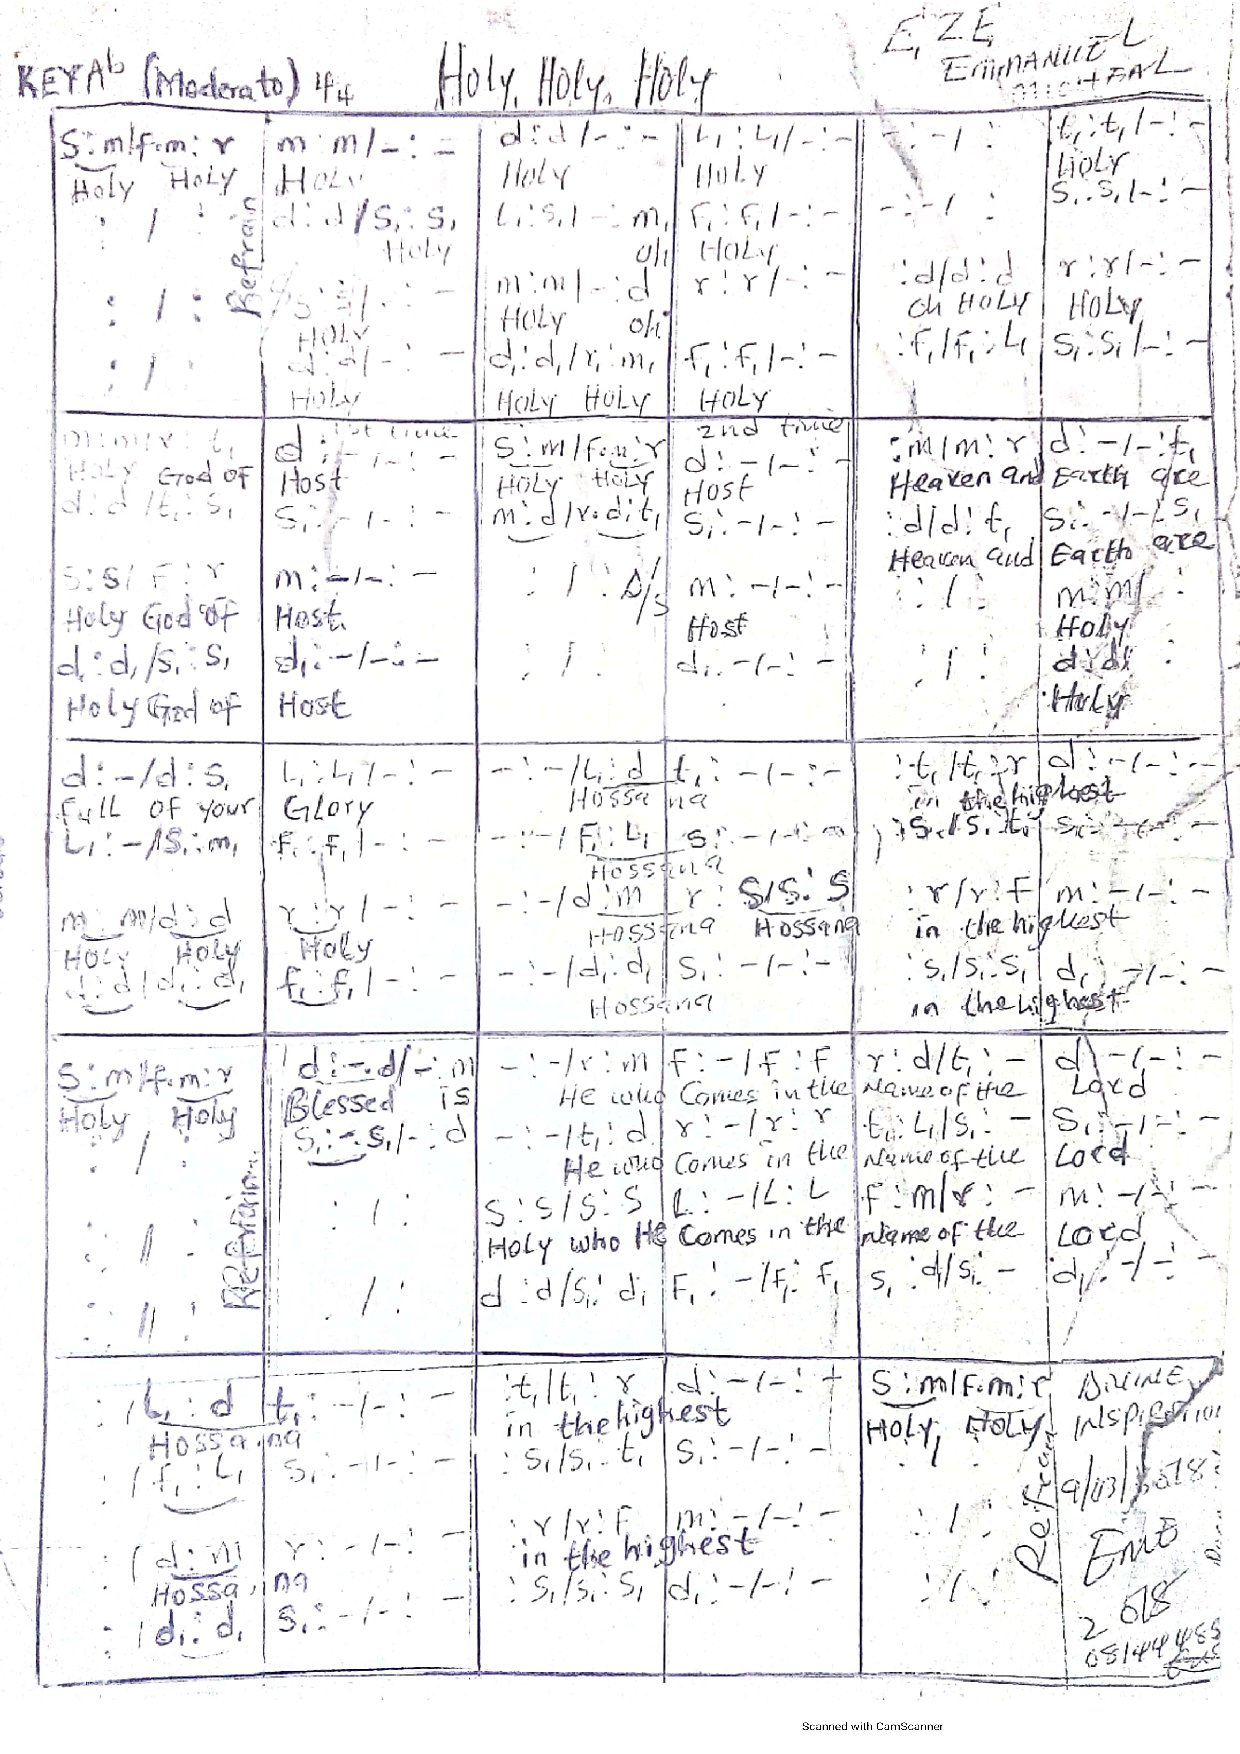 KEY Ab (Moderato) 4/4
Holy, Holy, Holy
EZE
EMMANUEL
S : m/f.m : r
Holy Holy
: / :
: / :
: / :
Refrain
m : m/- : -
Holy
d : d/S, : S,
Holy
- : -
HOLY
d : d/- : -
HOLY
d : d/- : -
Holy
L, : S,/- : m,
oh
m : m/- : d
HOLY oh
d, : d,/r, : m,
HOLY HOLY
L, : L,/- : -
HOLY
F, : F,/- : -
HOLY
r : r/- : -
F, : F,/- : -
HOLY
- : -/ :
- : -/ :
: d/d : d
oh HOLY
: F,/F, : L,
t, : t,/- : -
HOLY
S, : S,/- : -
r : r/- : -
HOLY
S, : S,/- : -
m : m/r : t,
HOLY God of
d : d/t, : S,
S : S/F : r
Holy God of
d, : d,/S, : S,
Holy God of
1st time
d : -/- : -
Host
S, : -/- : -
m : -/- : -
Host.
d, : -/- : -
Host
S : m/F.m : r
HOLY HOLY
m : d/r.d : t,
: / : D/S
: / :
2nd time
d : -/- : -
HOST
S, : -/- : -
m : -/- : -
Host
d, : -/- : -
: m/m : r
Heaven and
: d/d : t,
Heaven and
: / :
: / :
d : -/- : t,
Earth are
S, : -/- : S,
Earth are
m : m/ :
Holy
d : d/ :
Holy
d : -/d : S,
full of your
L, : -/S, : m,
m : m/d : d
HOLY Holy
d : d/d, : d,
L, : L,/- : -
Glory
F, : F,/- : -
r : r/- : -
Holy
f, : f,/- : -
- : -/L, : d
Hossa
- : -/F, : L,
Hossana
- : -/d : m
HOSSana
- : -/d, : d,
HOSSana
t, : -/- : -
na
S, : -/- : -
r : S/S : S
HOSSana
S, : -/- : -
: t,/t, : r
in the highest
: S,/S, : t,
: r/r : F
in the highest
: S,/S, : S,
in the highest
d : -/- : -
S, : -/- : -
m : -/- : -
d, : -/- : -
S : m/f.m : r
Holy Holy
: / :
: // :
: // :
Refrain
d : -.d/- : m
Blessed is
S, : -.S,/- : d
: / :
. / :
- : -/r : m
He who
- : -/t, : d
He who
S : S/S : S
HOLY who HE
d : d/S, : d,
F : -/F : F
Comes in the
r : -/r : r
Comes in the
L : -/L : L
Comes in the
F, : -/F, : F,
r : d/t, : -
Name of the
t, : L,/S, : -
Name of the
F : m/r : -
Name of the
S, : d/S, : -
d : -/- : -
Lord
S, : -/- : -
Lord
m : -/- : -
Lord
d, : -/- : -
: /L, : d
Hossa
: /f, : L,
: /d : m
Hossa,
: /d, : d,
t, : -/- : -
na
S, : -/- : -
r : -/- : -
na
S, : -/- : -
: t,/t, : r
in the highest
: S,/S, : t,
: r/r : F
in the highest
: S,/S, : S,
d : -/- : +
S, : -/- : -
m : -/- : -
d, : -/- : -
S : m/F.m : r
HOLY, HOLY
: / :
: / :
Refrain
DIVINE
Scanned with CamScanner